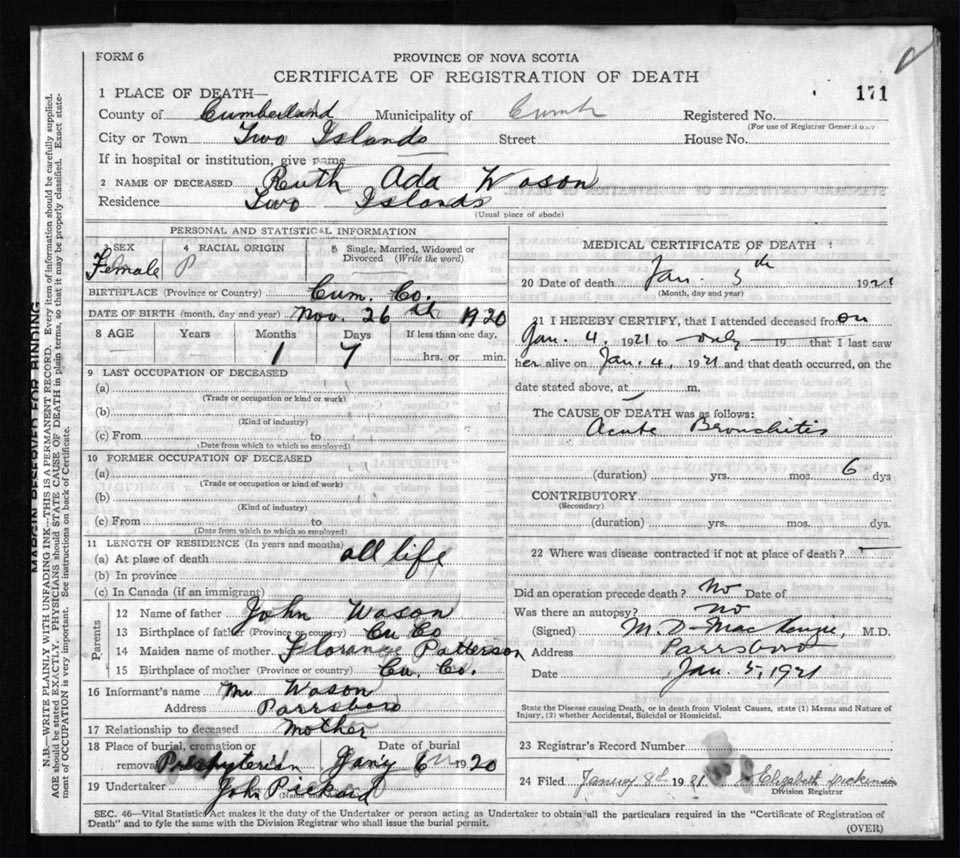 FORM 6
PROVINCE OF NOVA SCOTIA
CERTIFICATE OF REGISTRATION OF DEATH
171
1 PLACE OF DEATH—
County of Cumberland Municipality of Cumb Registered No.
(For use of Registrar General only)
City or Town Two Islands Street House No.
If in hospital or institution, give name
2 NAME OF DECEASED Ruth Ada Wason
Residence Two Islands
(Usual place of abode)
PERSONAL AND STATISTICAL INFORMATION
3 SEX 4 RACIAL ORIGIN 5 Single, Married, Widowed or Divorced (Write the word)
Female
BIRTHPLACE (Province or Country) Cum. Co.
DATE OF BIRTH (month, day and year) Nov. 26th 1920
8 AGE Years Months Days If less than one day,
1 7 hrs. or min.
9 LAST OCCUPATION OF DECEASED
(a)
(Trade or occupation or kind or work)
(b)
(Kind of industry)
(c) From to
(Date from which to which so employed)
10 FORMER OCCUPATION OF DECEASED
(a)
(Trade or occupation or kind of work)
(b)
(Kind of industry)
(c) From to
(Date from which to which so employed)
11 LENGTH OF RESIDENCE (In years and months)
(a) At place of death all life
(b) In province
(c) In Canada (if an immigrant)
Parents
12 Name of father John Wason
13 Birthplace of father (Province or country) Cu Co
14 Maiden name of mother Florance Patterson
15 Birthplace of mother (Province or country) Cu. Co.
16 Informant's name Mrs Wason
Address Parrsboro
17 Relationship to deceased Mother
18 Place of burial, cremation or removal Date of burial
Presbyterian Jan'y 6 1920
19 Undertaker John Pickard
MEDICAL CERTIFICATE OF DEATH :
20 Date of death Jan 5th 1921
(Month, day and year)
21 I HEREBY CERTIFY, that I attended deceased from on
Jan. 4, 1921 to only 19 that I last saw
her alive on Jan. 4, 1921 and that death occurred, on the
date stated above, at m.
The CAUSE OF DEATH was as follows:
Acute Bronchitis
(duration) yrs. mos. 6 dys
CONTRIBUTORY
(Secondary)
(duration) yrs. mos. dys.
22 Where was disease contracted if not at place of death?
Did an operation precede death? No Date of
Was there an autopsy? No
(Signed) M. D. MacKenzie, M.D.
Address Parrsboro
Date Jan. 5, 1921
State the Disease causing Death, or in death from Violent Causes, state (1) Means and Nature of
Injury, (2) whether Accidental, Suicidal or Homicidal.
23 Registrar's Record Number
24 Filed January 8th 1921 Elizabeth Dickinson
Division Registrar
SEC. 46—Vital Statistics Act makes it the duty of the Undertaker or person acting as Undertaker to obtain all the particulars required in the "Certificate of Registration of
Death" and to fyle the same with the Division Registrar who shall issue the burial permit.
(OVER)
MARGIN RESERVED FOR BINDING
N.B.—WRITE PLAINLY WITH UNFADING INK—THIS IS A PERMANENT RECORD. Every item of information should be carefully supplied.
AGE should be stated EXACTLY. PHYSICIANS should STATE CAUSE OF DEATH in plain terms, so that it may be properly classified. Exact state-
ment of OCCUPATION is very important. See instructions on back of Certificate.